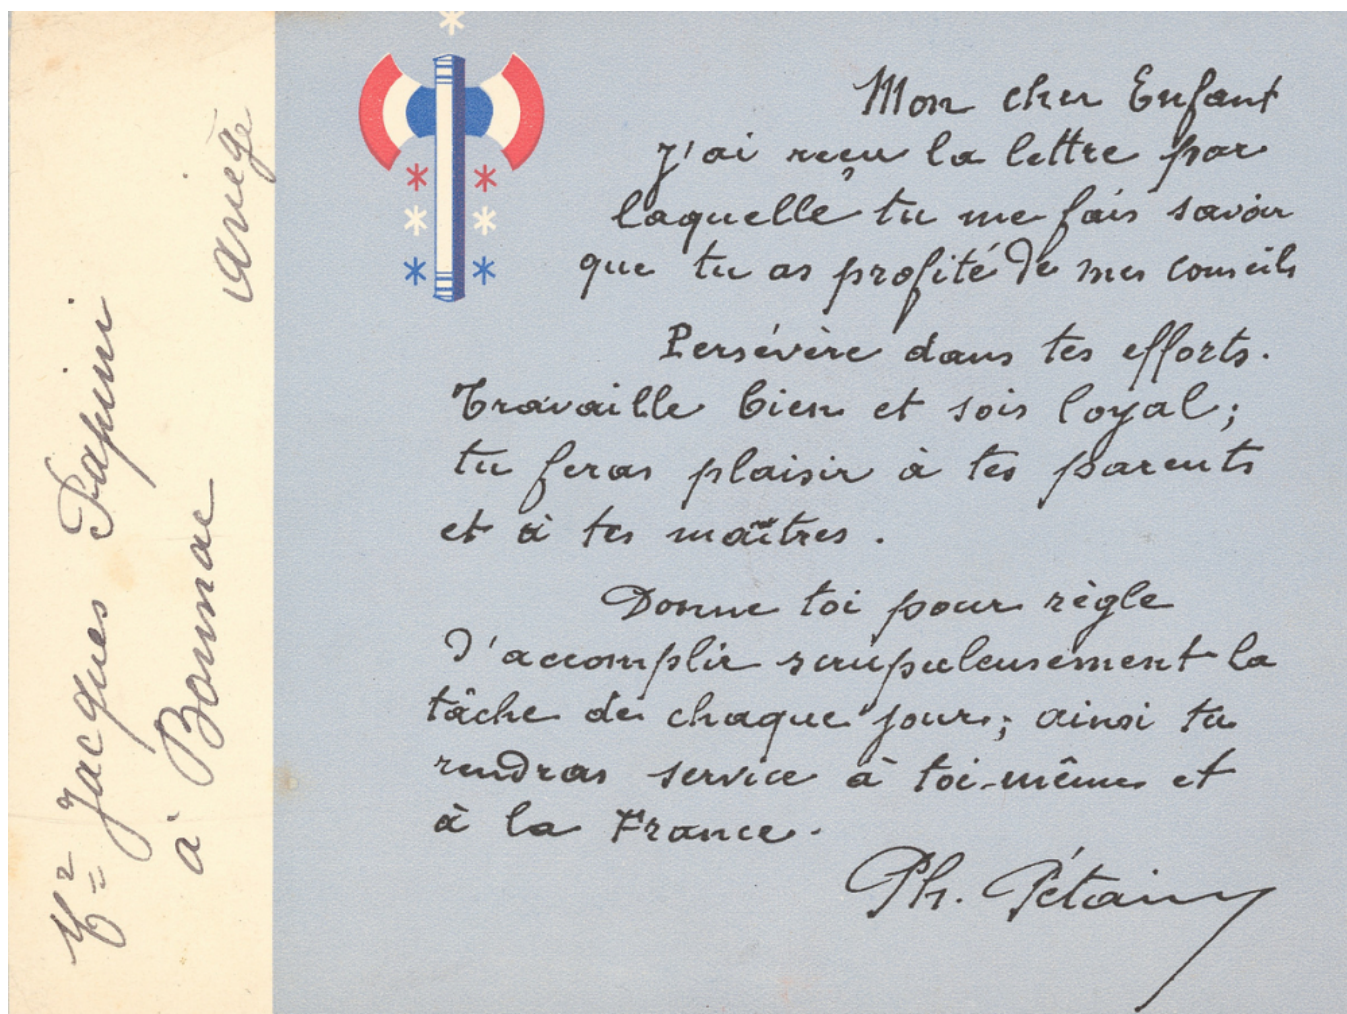 Mon cher Enfant
j'ai reçu la lettre par
laquelle tu me fais savoir
que tu as profité de mes conseils
Persévère dans tes efforts.
Travaille bien et sois loyal;
tu feras plaisir à tes parents
et à tes maîtres.
Donne toi pour règle
d'accomplir scrupuleusement la
tâche de chaque jour; ainsi tu
rendras service à toi-même et
à la France.
Ph. Pétain
Jacques Papini
à Bonnac
Ariège